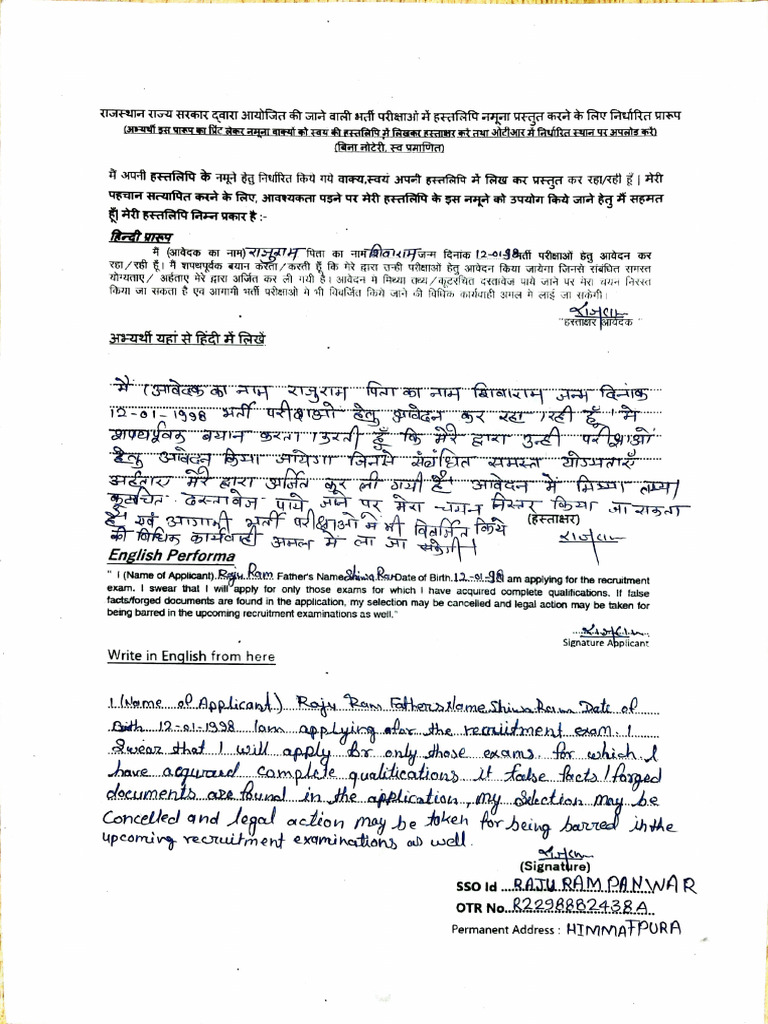 राजस्थान राज्य सरकार द्वारा आयोजित की जाने वाली भर्ती परीक्षाओं में हस्तलिपि नमूना प्रस्तुत करने के लिए निर्धारित प्रारूप
(अभ्यर्थी इस प्रारूप का प्रिंट लेकर नमूना वाक्यों को स्वयं की हस्तलिपि में लिखकर हस्ताक्षर करे तथा ओटीआर में निर्धारित स्थान पर अपलोड करें)
(बिना नोटेरी, स्व प्रमाणित)
में अपनी हस्तलिपि के नमूने हेतु निर्धारित किये गये वाक्य,स्वयं अपनी हस्तलिपि में लिख कर प्रस्तुत कर रहा/रही हूँ | मेरी
पहचान सत्यापित करने के लिए, आवश्यकता पड़ने पर मेरी हस्तलिपि के इस नमूने को उपयोग किये जाने हेतु मैं सहमत
हूँ| मेरी हस्तलिपि निम्न प्रकार है :-
हिन्दी प्रारूप
मैं (आवेदक का नाम) राजुराम पिता का नाम शिवाराम जन्म दिनांक 12-01-98 भर्ती परीक्षाओं हेतु आवेदन कर
रहा/रही हूँ। मैं शपथपूर्वक बयान करता/करती हूँ कि मेरे द्वारा उन्ही परीक्षाओं हेतु आवेदन किया जायेगा जिनसे संबंधित समस्त
योग्यताए/ अर्हताए मेरे द्वारा अर्जित कर ली गयी है। आवेदन मे मिथ्या तथ्य/कूटरचित दस्तावेज पाये जाने पर मेरा चयन निरस्त
किया जा सकता है एवं आगामी भर्ती परीक्षाओं मे भी विवर्जित किये जाने की विधिक कार्यवाही अमल मे लाई जा सकेगी।
हस्ताक्षर आवेदक
अभ्यर्थी यहां से हिंदी में लिखें
मैं (आवेदक का नाम राजुराम पिता का नाम शिवाराम जन्म दिनांक
12-01-1998 भर्ती परीक्षाओं हेतु आवेदन कर रहा/रही हूँ। मै
शपथपूर्वक बयान करता/करती हूँ कि मेरे द्वारा उन्ही परीक्षाओं
हेतु आवेदन किया जायेगा जिनसे संबंधित समस्त योग्यताएँ
अर्हताए मेरे द्वारा अर्जित कर ली गयी है। आवेदन में मिथ्या तथ्य/
कूटरचित दस्तावेज पाये जाने पर मेरा चयन निरस्त किया जा सकता
है एवं आगामी भर्ती परीक्षाओ मे भी विवर्जित किये (हस्ताक्षर)
की विधिक कार्यवाही अमल में ला जा सकेगी।
English Performa
" I (Name of Applicant) Raju Ram Father's Name Shiwa Ram Date of Birth 12-01-98 am applying for the recruitment
exam. I swear that I will apply for only those exams for which I have acquired complete qualifications. If false
facts/forged documents are found in the application, my selection may be cancelled and legal action may be taken for
being barred in the upcoming recruitment examinations as well."
Signature Applicant
Write in English from here
I (Name of Applicant) Raju Ram Fathers Name Shiwa Ram Date of
Birth 12-01-1998 I am applying for the recruitment exam. I
Swear that I will apply for only those exams for which I
have acquared complete qualifications it false facts/forged
documents are found in the application, my Selection may be
Concelled and legal action may be taken for being barred in the
upcoming recruitment examinations as well.
(Signature)
SSO Id RAJU RAM PANWAR
OTR No. R2298882438A
Permanent Address : HIMMATPURA